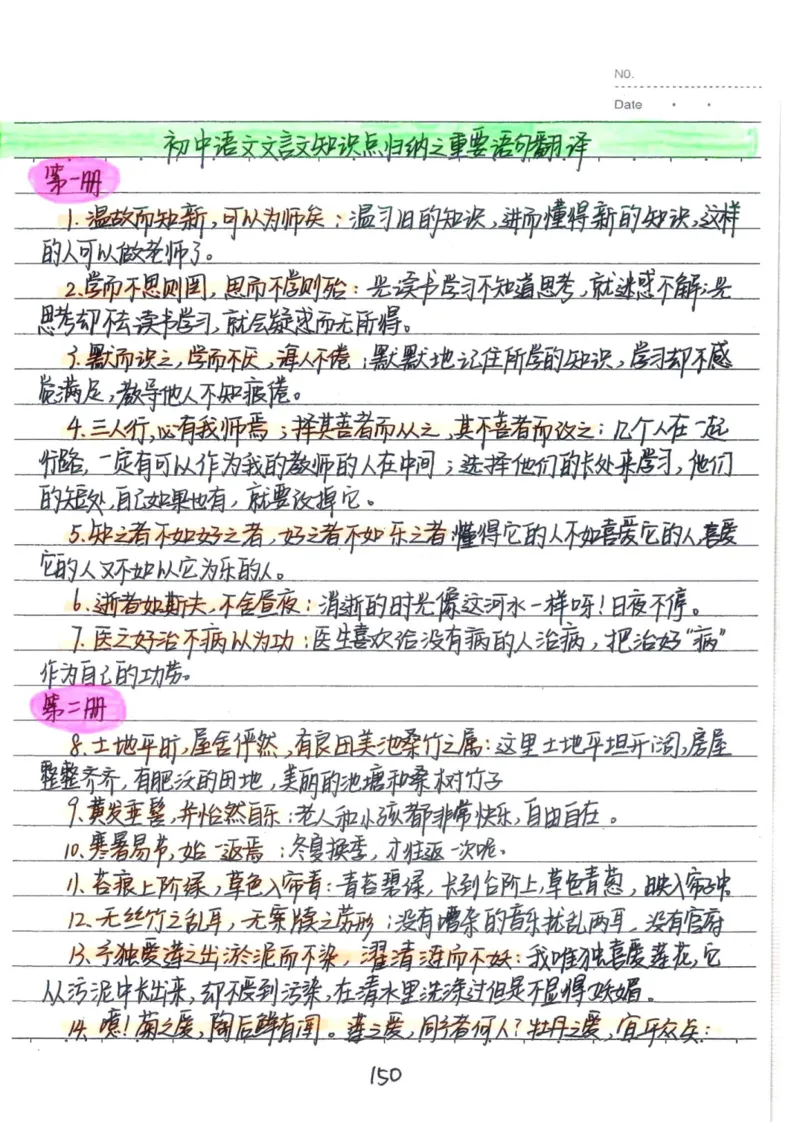 NO.
Date
初中语文文言文知识点归纳之重要语句翻译
第一册
1. 温故而知新，可以为师矣：温习旧的知识，进而懂得新的知识，这样
的人可以做老师了。
2. 学而不思则罔，思而不学则殆：光读书学习不知道思考，就迷惑不解；光
思考却不去读书学习，就会疑惑而无所得。
3. 默而识之，学而不厌，诲人不倦：默默地记住所学的知识，学习却不感
觉满足，教导他人不知疲倦。
4. 三人行，必有我师焉；择其善者而从之，其不善者而改之：几个人在一起
行路，一定有可以作为我的教师的人在中间；选择他们的长处来学习，他们
的短处，自己如果也有，就要改掉它。
5. 知之者不如好之者，好之者不如乐之者：懂得它的人不如喜爱它的人，喜爱
它的人又不如以它为乐的人。
6. 逝者如斯夫，不舍昼夜：消逝的时光像这河水一样呀！日夜不停。
7. 医之好治不病以为功：医生喜欢给没有病的人治病，把治好“病”
作为自己的功劳。
第二册
8. 土地平旷，屋舍俨然，有良田美池桑竹之属：这里土地平坦开阔，房屋
整整齐齐，有肥沃的田地，美丽的池塘和桑树竹子
9. 黄发垂髫，并怡然自乐：老人和小孩都非常快乐，自由自在。
10. 寒暑易节，始一返焉：冬夏换季，才往返一次呢。
11. 苔痕上阶绿，草色入帘青：青苔碧绿，长到台阶上，草色青葱，映入帘子中
12. 无丝竹之乱耳，无案牍之劳形：没有嘈杂的音乐扰乱两耳，没有官府
13. 予独爱莲之出淤泥而不染，濯清涟而不妖：我唯独喜爱莲花，它
从污泥中长出来，却不受到污染，在清水里洗涤过但是不显得妖媚。
14. 噫！菊之爱，陶后鲜有闻。莲之爱，同予者何人？牡丹之爱，宜乎众矣：
150